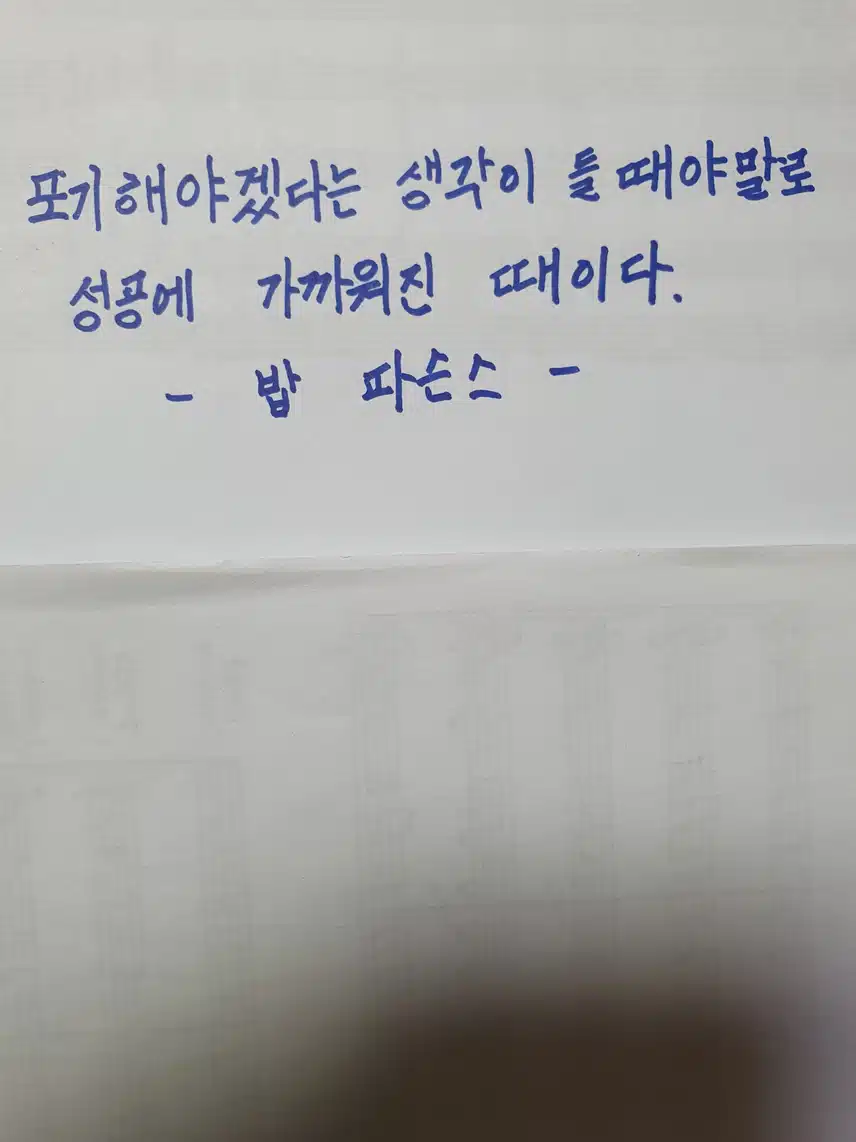 포기해야겠다는 생각이 들때야말로
성공에 가까워진 때이다.
- 밥 파슨스 -